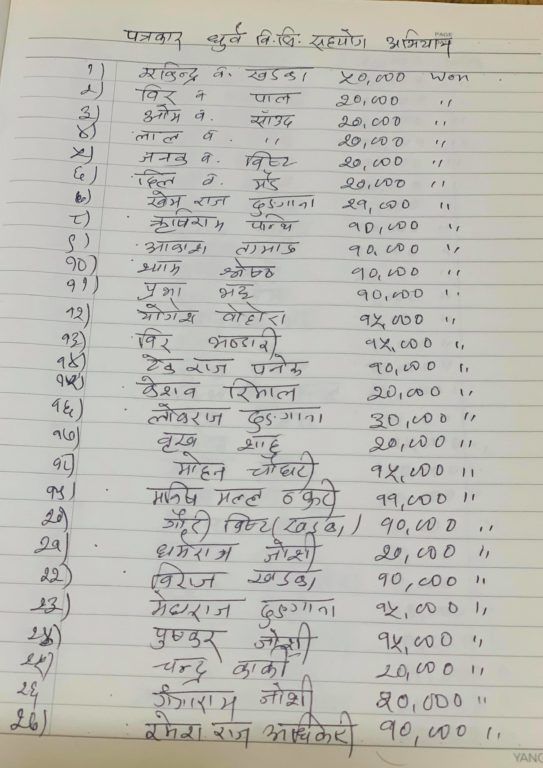 PAGE
पत्रकार ध्रुर्व वि.सि. सहयोग अभियान
१) रविन्द्र व. खडका ५०,००० Won
२) विर व पाल २०,००० "
३) ओम व. साँउद २०,००० "
४) लाल व. " २०,००० "
५) जनक व. विष्ट २०,००० "
६) दिल व. सेँड २०,००० "
७) खेम राज ढुङ्गाना २१,००० "
८) ऋषिराम पन्थि १०,००० "
९) आकाश तामाङ १०,००० "
१०) श्याम श्रेष्ठ १०,००० "
११) प्रभा भट्ट १०,००० "
१२) योगेश वोहोरा १५,००० "
१३) विर भण्डारी १५,००० "
१४) टेक राज पनेरु १०,००० "
१५) केशव रिमाल २०,००० "
१६) लोकराज ढुङ्गाना ३०,००० "
१७) वृख शाहु २०,००० "
१८) मोहन चौधरी १५,००० "
१९) मनिष मल्ल ठकुरी ११,००० "
२०) गौरी विष्ट (खडका) १०,००० "
२१) धर्मराज जोशी २०,००० "
२२) विराज खडका १०,००० "
२३) मेघराज ढुङ्गाना १५,००० "
२४) पुष्कर जोशी १५,००० "
२५) चन्द्र कार्की २०,००० "
२६ गंगाराम जोशी २०,००० "
२७) रमेश राज अधिकारी १०,००० "
YANG